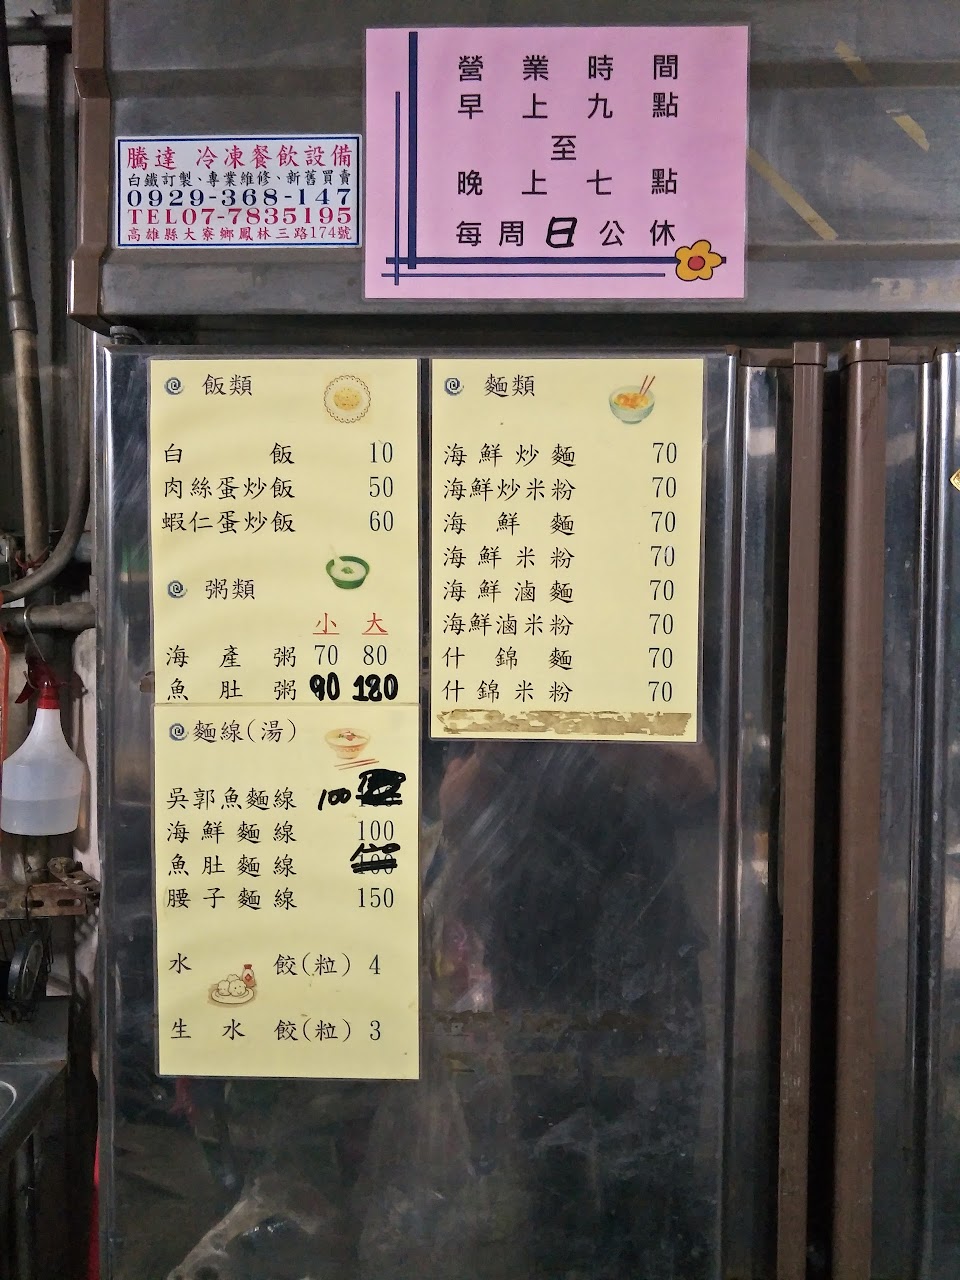 營業時間
早上九點
至
晚上七點
每周日公休
騰達 冷凍餐飲設備
白鐵訂製、專業維修、新舊買賣
0929-368-147
TEL07-7835195
高雄縣大寮鄉鳳林三路174號
飯類
白飯 10
肉絲蛋炒飯 50
蝦仁蛋炒飯 60
粥類
小 大
海產粥 70 80
魚肚粥 90 180
麵線(湯)
吳郭魚麵線 100
海鮮麵線 100
魚肚麵線
腰子麵線 150
水餃(粒) 4
生水餃(粒) 3
麵類
海鮮炒麵 70
海鮮炒米粉 70
海鮮麵 70
海鮮米粉 70
海鮮滷麵 70
海鮮滷米粉 70
什錦麵 70
什錦米粉 70